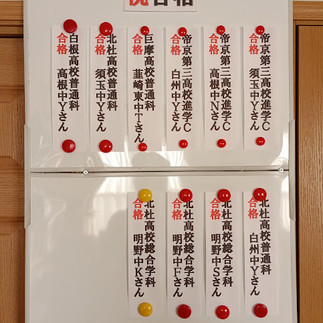 合格
帝京第三高校進学C
合格 須玉中Yさん
帝京第三高校進学C
合格 高根中Nさん
帝京第三高校進学C
合格 白州中Yさん
巨摩高校普通科
合格 韮崎東中Tさん
北杜高校普通科
合格 須玉中Yさん
白根高校普通科
合格 高根中Yさん
北杜高校普通科
合格 白州中Yさん
北杜高校総合学科
合格 明野中Sさん
北杜高校総合学科
合格 明野中Fさん
北杜高校総合学科
合格 明野中Kさん